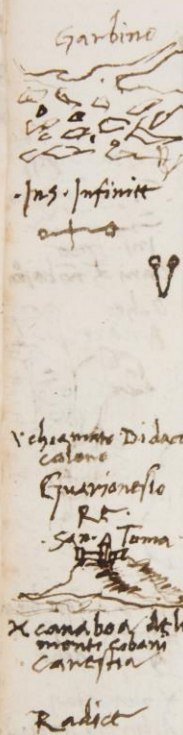 Garbino
.Ins. Infinite
chiamato Didact
colono
Guarionesio
Re.
San. A Toma
x canaboa del
monti Cobani
Carestia
Radice